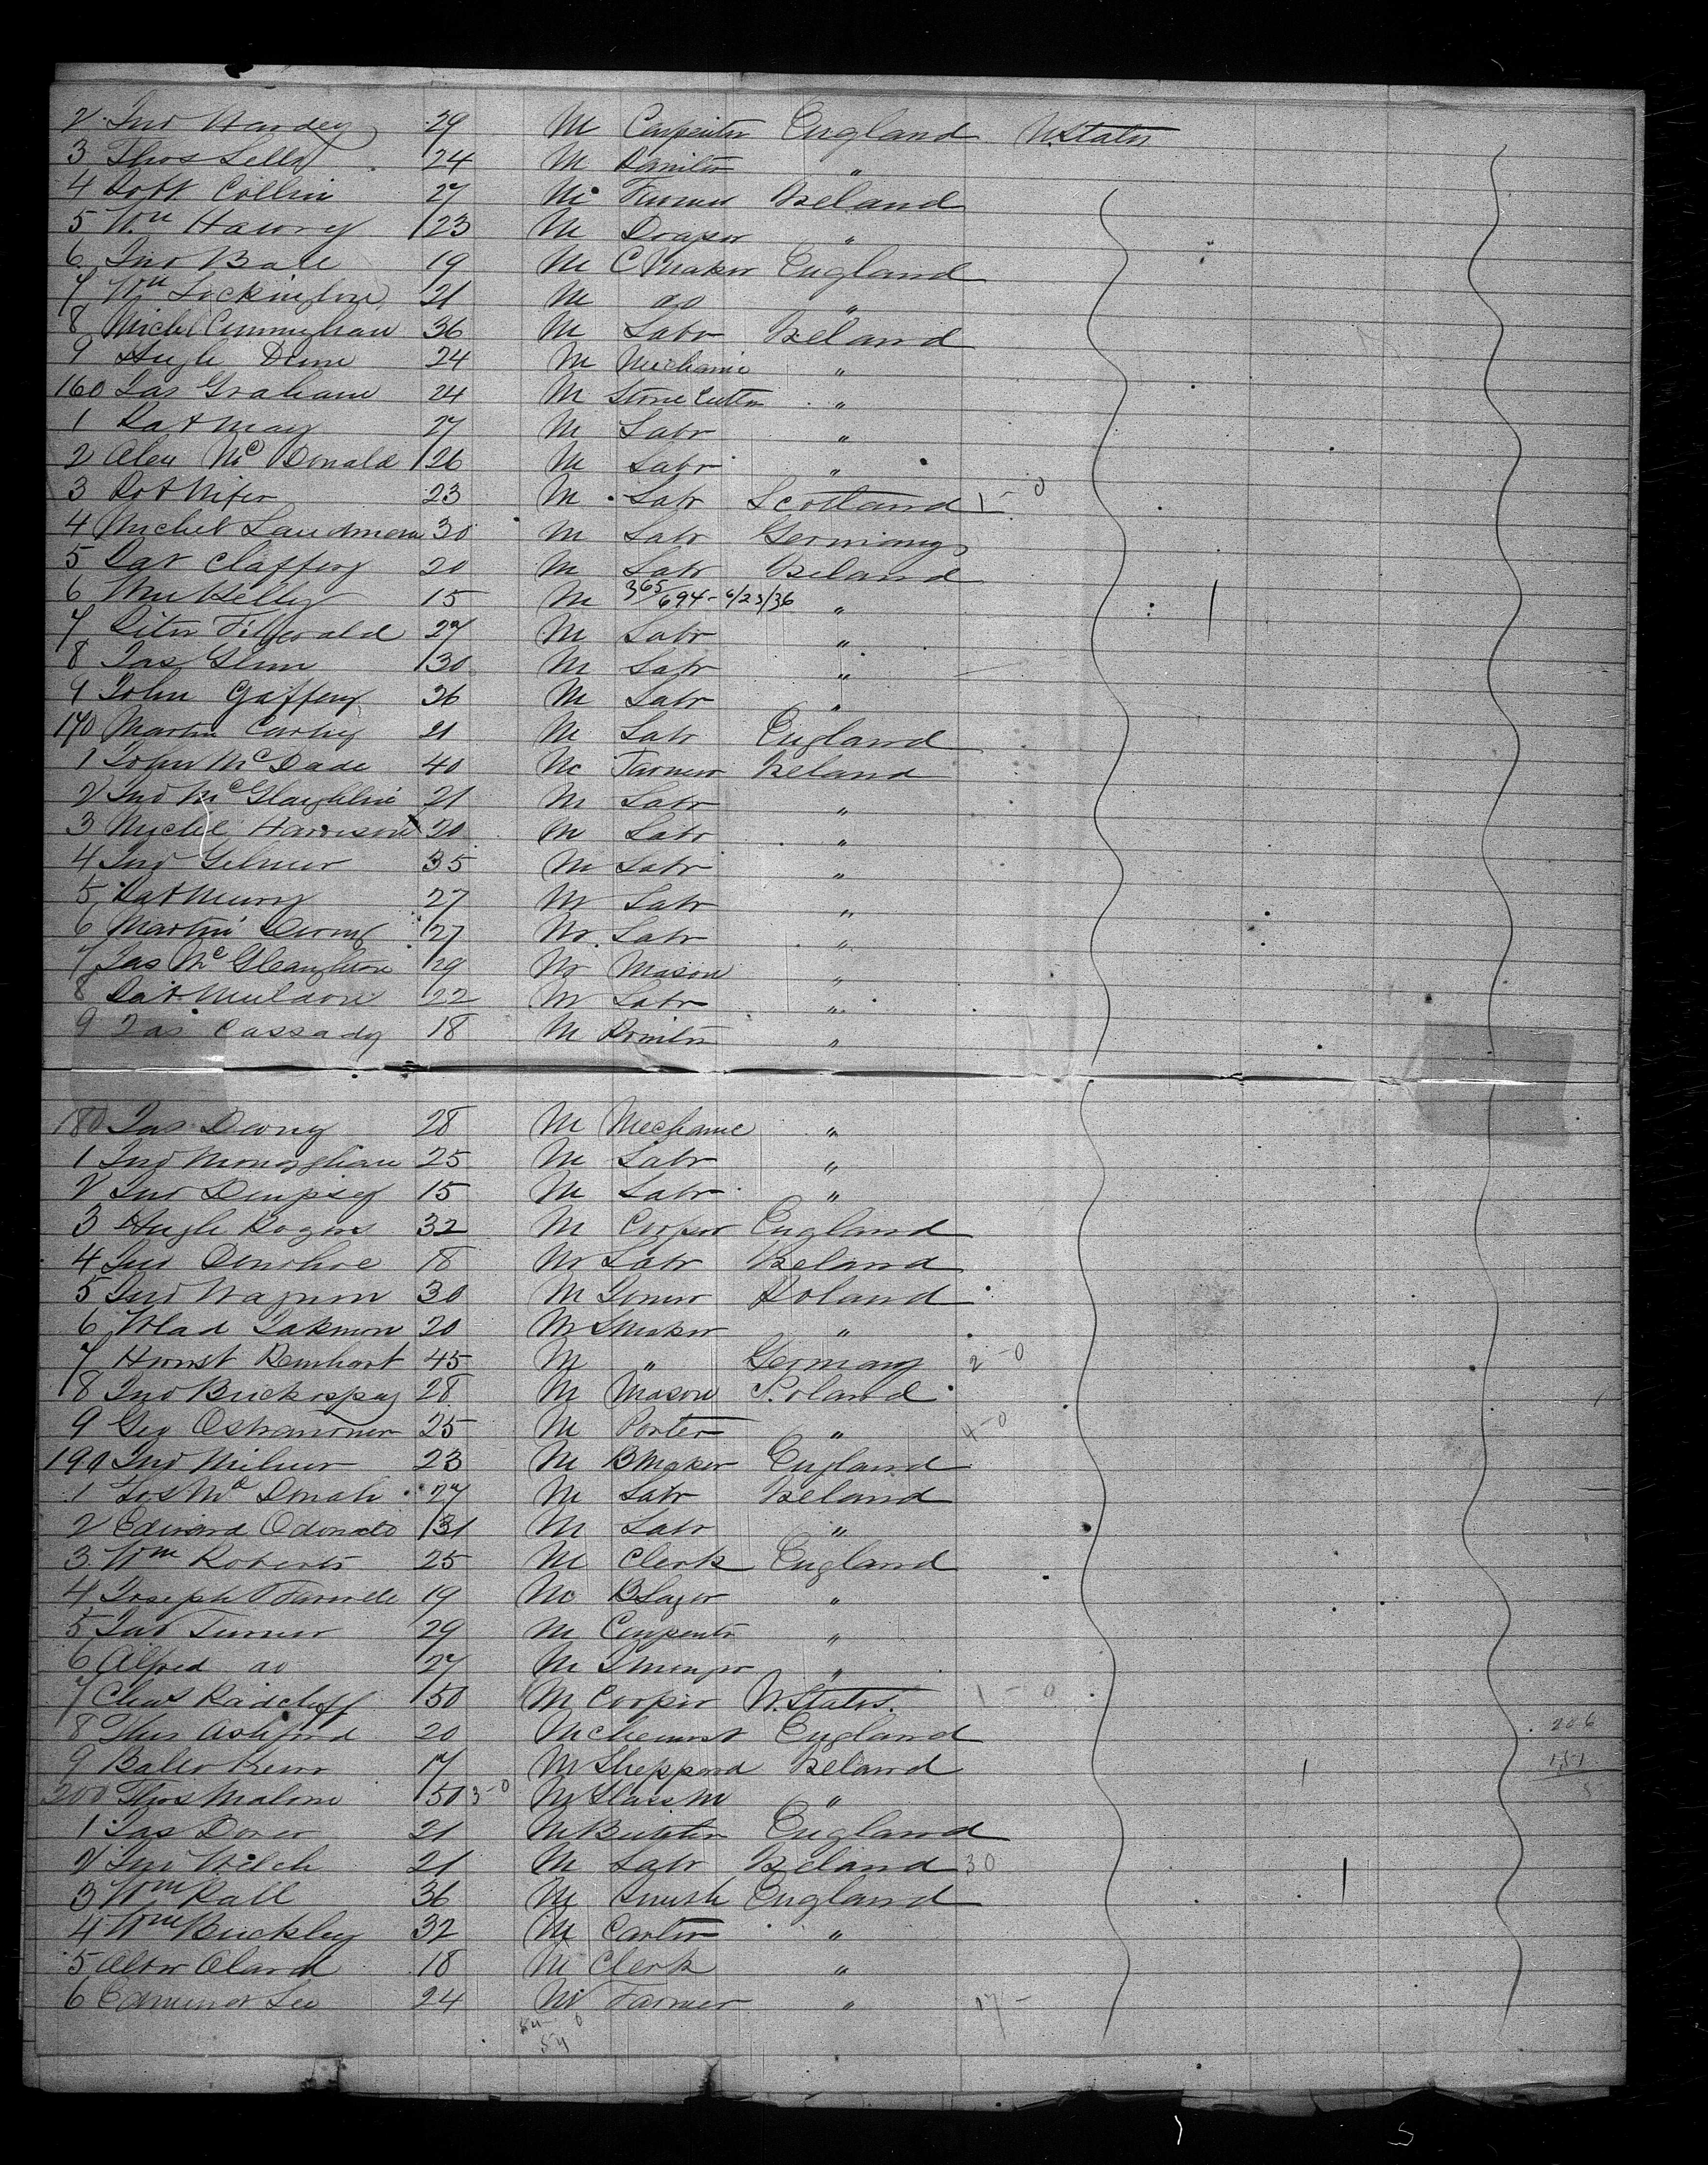 2 Jno Hardey 29 M Carpenter England U. States
3 Thos Selby 24 M Painter "
4 Robt Collin 27 M Farmer Ireland
5 Wm Haury 23 M Draper "
6 Jno Bale 19 M C Maker England
7 Wm Lockington 21 M do "
8 Michl Cunningham 36 M Labr Ireland
9 Hugh Dunn 24 M Mechanic "
160 Jas Graham 24 M Stone Cutter "
1 Pat May 27 M Labr "
2 Alex McDonald 26 M Labr "
3 23 M Labr Scotland 1 - 0
4 Michel Landmann 30 M Labr Germany
5 Pat Claffery 20 M Labr Ireland
6 Wm Kelly 15 M 365/694-6/23/36 "
7 Peter Fitzgerald 27 M Labr "
8 Jas Glinn 30 M Labr "
9 John Gaffeny 36 M Labr "
170 Martin Carthy 21 M Labr England
1 John McDade 40 M Farmer Ireland
2 Jno McGlaughlin 21 M Labr "
3 Michl Harrison 20 M Labr "
4 Jno Gilmer 35 M Labr "
5 Pat Murry 27 M Labr "
6 Martin 27 M Labr "
7 Jas McGlaughlin 29 M Mason "
8 Pat Muldoon 22 M Labr "
9 Jas Cassady 18 M Painter "
180 Jas Davry 28 M Mechanic "
1 Jno Monaghan 25 M Labr "
2 Jno Dempsey 15 M Labr "
3 Hugh Rogers 32 M Cooper England
4 Jno Donohoe 18 M Labr Ireland
5 Jno Wagnon 30 M Joiner Poland
6 Wlad 20 M S Maker "
7 Reinhart 45 M " Germany 2 - 0
8 Jno 28 M Mason Poland
9 Geo 25 M Porter " 4-0
190 Jno Milner 23 M B Maker England
1 Jos Mc Donah 27 M Labr Ireland
2 Edward Odonald 31 M Labr "
3 Wm Roberts 25 M Clerk England
4 Joseph Farrell 19 M B Layer "
5 Jas Turner 29 M Carpenter "
6 Alfred do 27 M "
7 Chas Radcliff 50 M Cooper U. States. 1 - 0
8 Thos Ashford 20 M Chemist England 206
9 17 M Sheppard Ireland 151
200 Thos Malone 50 3-0 M Glass M "
1 Jas Dover 21 M England
2 Jno Welch 21 M Labr Ireland 30
3 Wm Rall 36 M Smith England
4 Wm Buckley 32 M Carter "
5 18 M Clerk "
6 Edmund Lee 24 M Farmer " 17 -
54 0
54